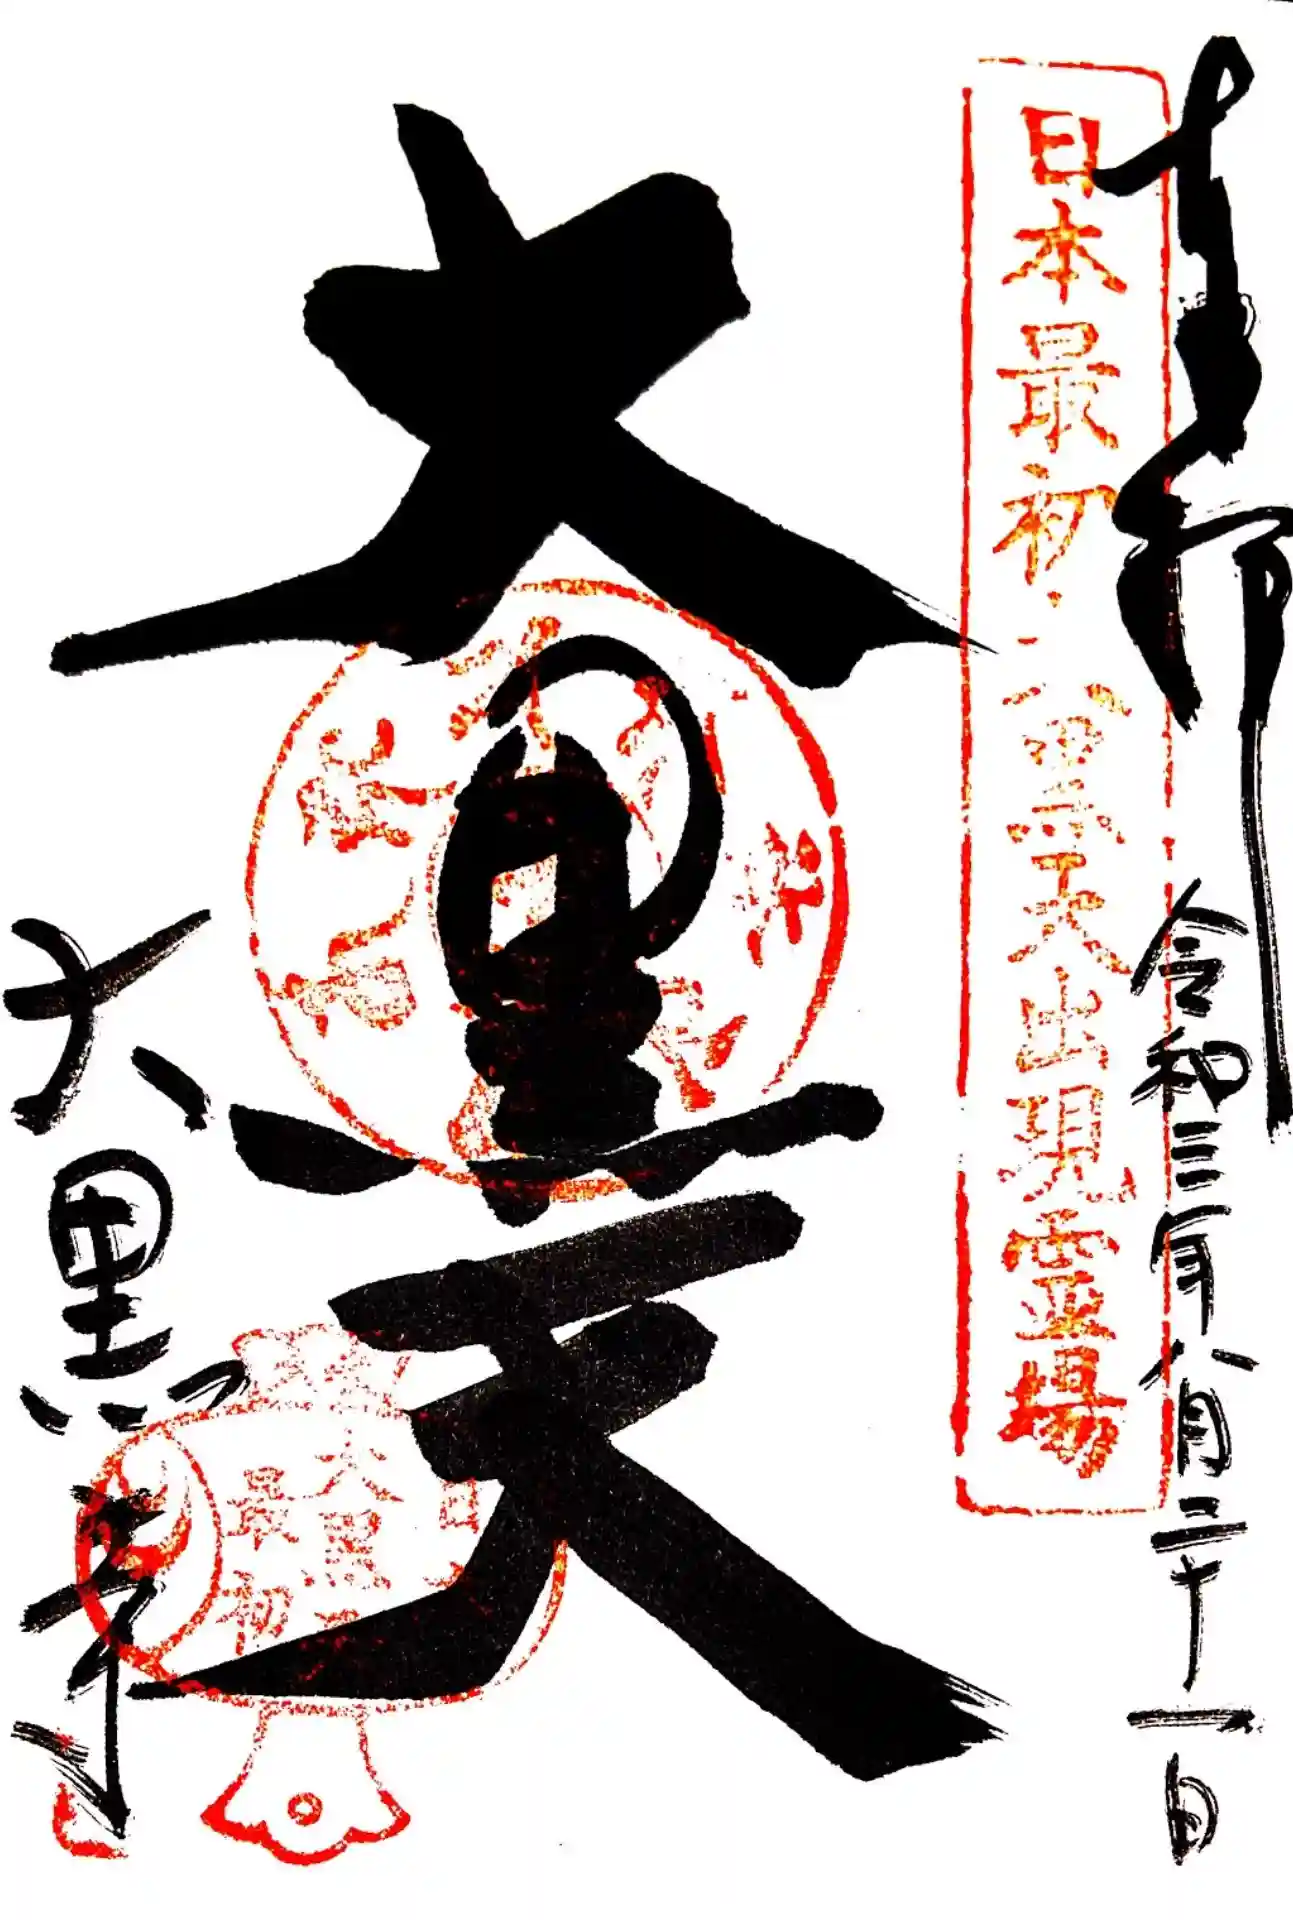 奉拝
令和三年八月二十一日
日本最初大黒天出現霊場
大黒天
大黒寺
日
大黒
最初